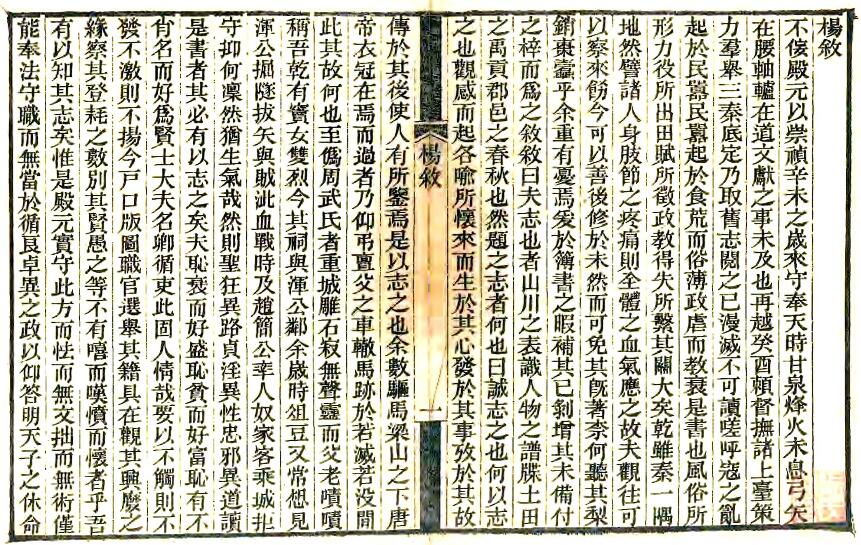 楊敘
不佞殿元以崇禎辛未之歲來守奉天時甘泉烽火未息弓矢
在腰軸轤在道文獻之事未及也再越癸酉賴督撫諸上臺策
力羣舉三秦底定乃取舊志閱之已漫滅不可讀嗟呼寇之亂
起於民嚚民嚚起於食荒而俗薄政虐而教衰是書也風俗所
形力役所出田賦所徵政教得失所繫其關大矣乾雖秦一隅
地然譬諸人身肢節之疼痛則全體之血氣應之故夫觀往可
以察來飭今可以善後修於未然而可免其旣著柰何聽其梨
銷棗蠹乎余重有憂焉爰於簿書之暇補其已剝增其未備付
之梓而爲之敘敘曰夫志也者山川之表識人物之譜牒土田
之禹貢郡邑之春秋也然題之志者何也曰誠志之也何以志
之也觀感而起各喻所懷來而生於其心發於其事攷於其故
楊敘
一
傳於其後使人有所鑒焉是以志之也余數驅馬梁山之下唐
帝衣冠在焉而過者乃仰弔亶父之車轍馬跡於若滅若沒閒
此其故何也至僞周武氏者重城雕石寂無聲靈而父老嘖嘖
稱吾乾有竇女雙烈今其祠與渾公鄰余歲時俎豆又常想見
渾公掘隧拔矢與賊泚血戰時及趙簡公率人奴家客乘城拒
守抑何凜然猶生氣哉然則聖狂異路貞淫異性忠邪異道讀
是書者其必有以志之矣夫恥衰而好盛恥貧而好富恥有不
肖名而好爲賢士大夫名卿循吏此固人情哉要以不觸則不
發不激則不揚今戸口版圖職官選舉其籍具在觀其興廢之
緣察其登耗之數別其賢愚之等不有嘻而嘆憤而懷者乎吾
有以知其志矣惟是殿元實守此方而怯而無文拙而無術僅
能奉法守職而無當於循良卓異之政以仰答明天子之休命